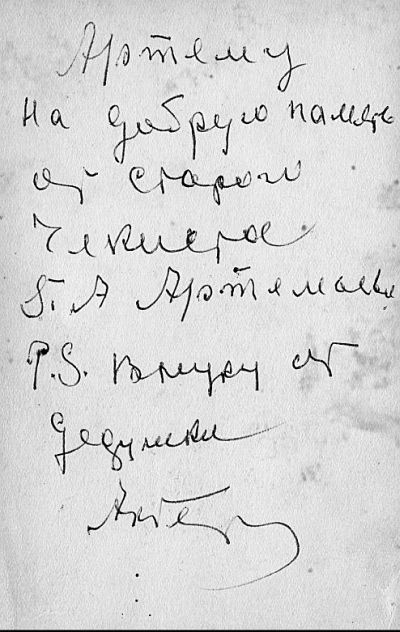 Артему
на добрую память
от старого
Чекиста
Б. А Артемова
P.S. внуку от
дедушки